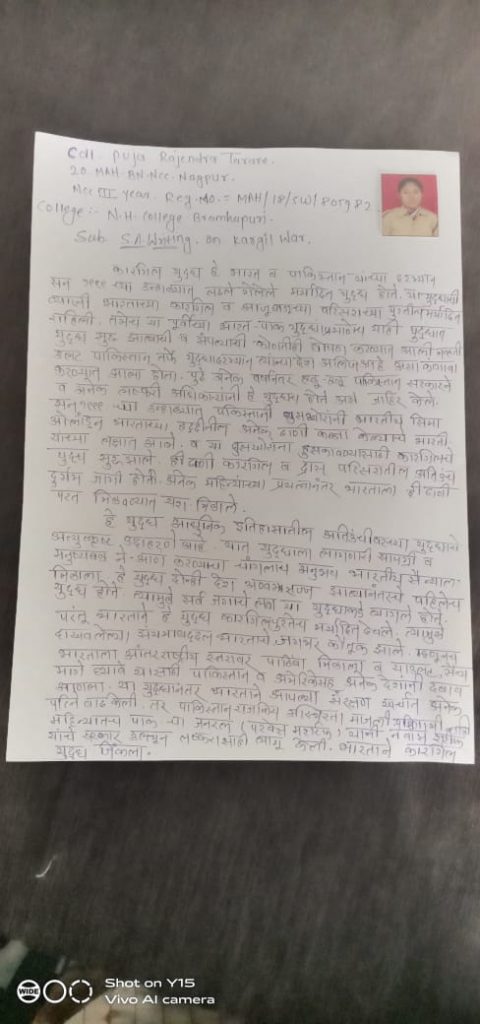 Cdt. Puja Rajendra Tarare.
20. MAH. BN. NCC. Nagpur.
NCC III year. Reg. No. = MAH/18/SW/805982
College :- N.H. College Bramhapuri.
Sub. S.A. Writing. on Kargil War.
कारगिल युद्ध हे भारत व पाकिस्तान यांच्या दरम्यान
सन १९९९ च्या उन्हाळ्यात लढले गेलेले मर्यादित युद्ध होते. या युद्धाची
व्याप्ती भारताच्या कारगिल व आजूबाजूच्या परिसराच्या पुरतीच मर्यादित
राहिली. तसेच या पूर्वीच्या भारत-पाक युद्धांप्रमाणे याही युद्धात
युद्ध सुरू झाल्याची व संपल्याची कोणतीही घोषणा करण्यात आली नव्हती
उलट पाकिस्तान तर्फे युद्धादरम्यान त्यांचा देश अलिप्त आहे असा कांगावा
करण्यात आला होता. पुढे अनेक वर्षांनंतर हळू हळू पाकिस्तान सरकारने
व अनेक लष्करी अधिकाऱ्यांनी हे युद्धच होते असे जाहिर केले.
सन् १९९९ च्या उन्हाळ्यात पाकिस्तानी घुसखोरांनी भारतीय सिमा
ओलांडून भारताच्या हद्दीतील अनेक ठाणी कब्जा केल्याचे भारतीय
यांच्या लक्षात आले. व या घुसखोरांना हुसकावण्यासाठी कारगिलचे
युद्ध सुरू झाले. ही ठाणी कारगिल व द्रास परिसरातील अतिउंच
दुर्गम जागी होती. अनेक महिन्याच्या प्रयत्नानंतर भारताला ही ठाणी
परत मिळवण्यात यश मिळाले.
हे युद्ध आधुनिक इतिहासातील अतिउंचीवरच्या युद्धाचे
अत्युत्कृष्ट उदाहरण आहे. यात युद्धाला लागणारी सामग्री व
मनुष्यबळ ने-आण करण्याचा चांगलाच अनुभव भारतीय सैन्याला
मिळाला. हे युद्ध दोन्ही देश अण्वस्त्रसज्ज झाल्यानंतरचे पहिलेच
युद्ध होते. त्यामुळे सर्व जगाचे लक्ष या युद्धाकडे लागले होते.
परंतु भारताने हे युद्ध कारगिलपुरतेच मर्यादित ठेवले. त्यामुळे
दाखवलेल्या संयमाबद्दल भारताचे जगभर कौतुक झाले. म्हणूनच
भारताला आंतरराष्ट्रीय स्तरावर पाठिंबा मिळाला व
मागे घ्यावे यासाठी पाकिस्तान व अमेरिकेसह अनेक देशांनी दबाव
आणला. या युद्धानंतर भारताने आपल्या संरक्षण खर्चात अनेक
पटीने वाढ केली. तर पाकिस्तान राजकिय अस्थिरता माजली
महिन्यातच पाक चा जनरल (परवेझ मुशर्रफ) यांनी नवाज शरीफ
यांचे सरकार उलथून लष्करशाही लागू केली. भारताने कारगिल
युद्ध जिंकला.
WIDE
Shot on Y15
Vivo AI camera